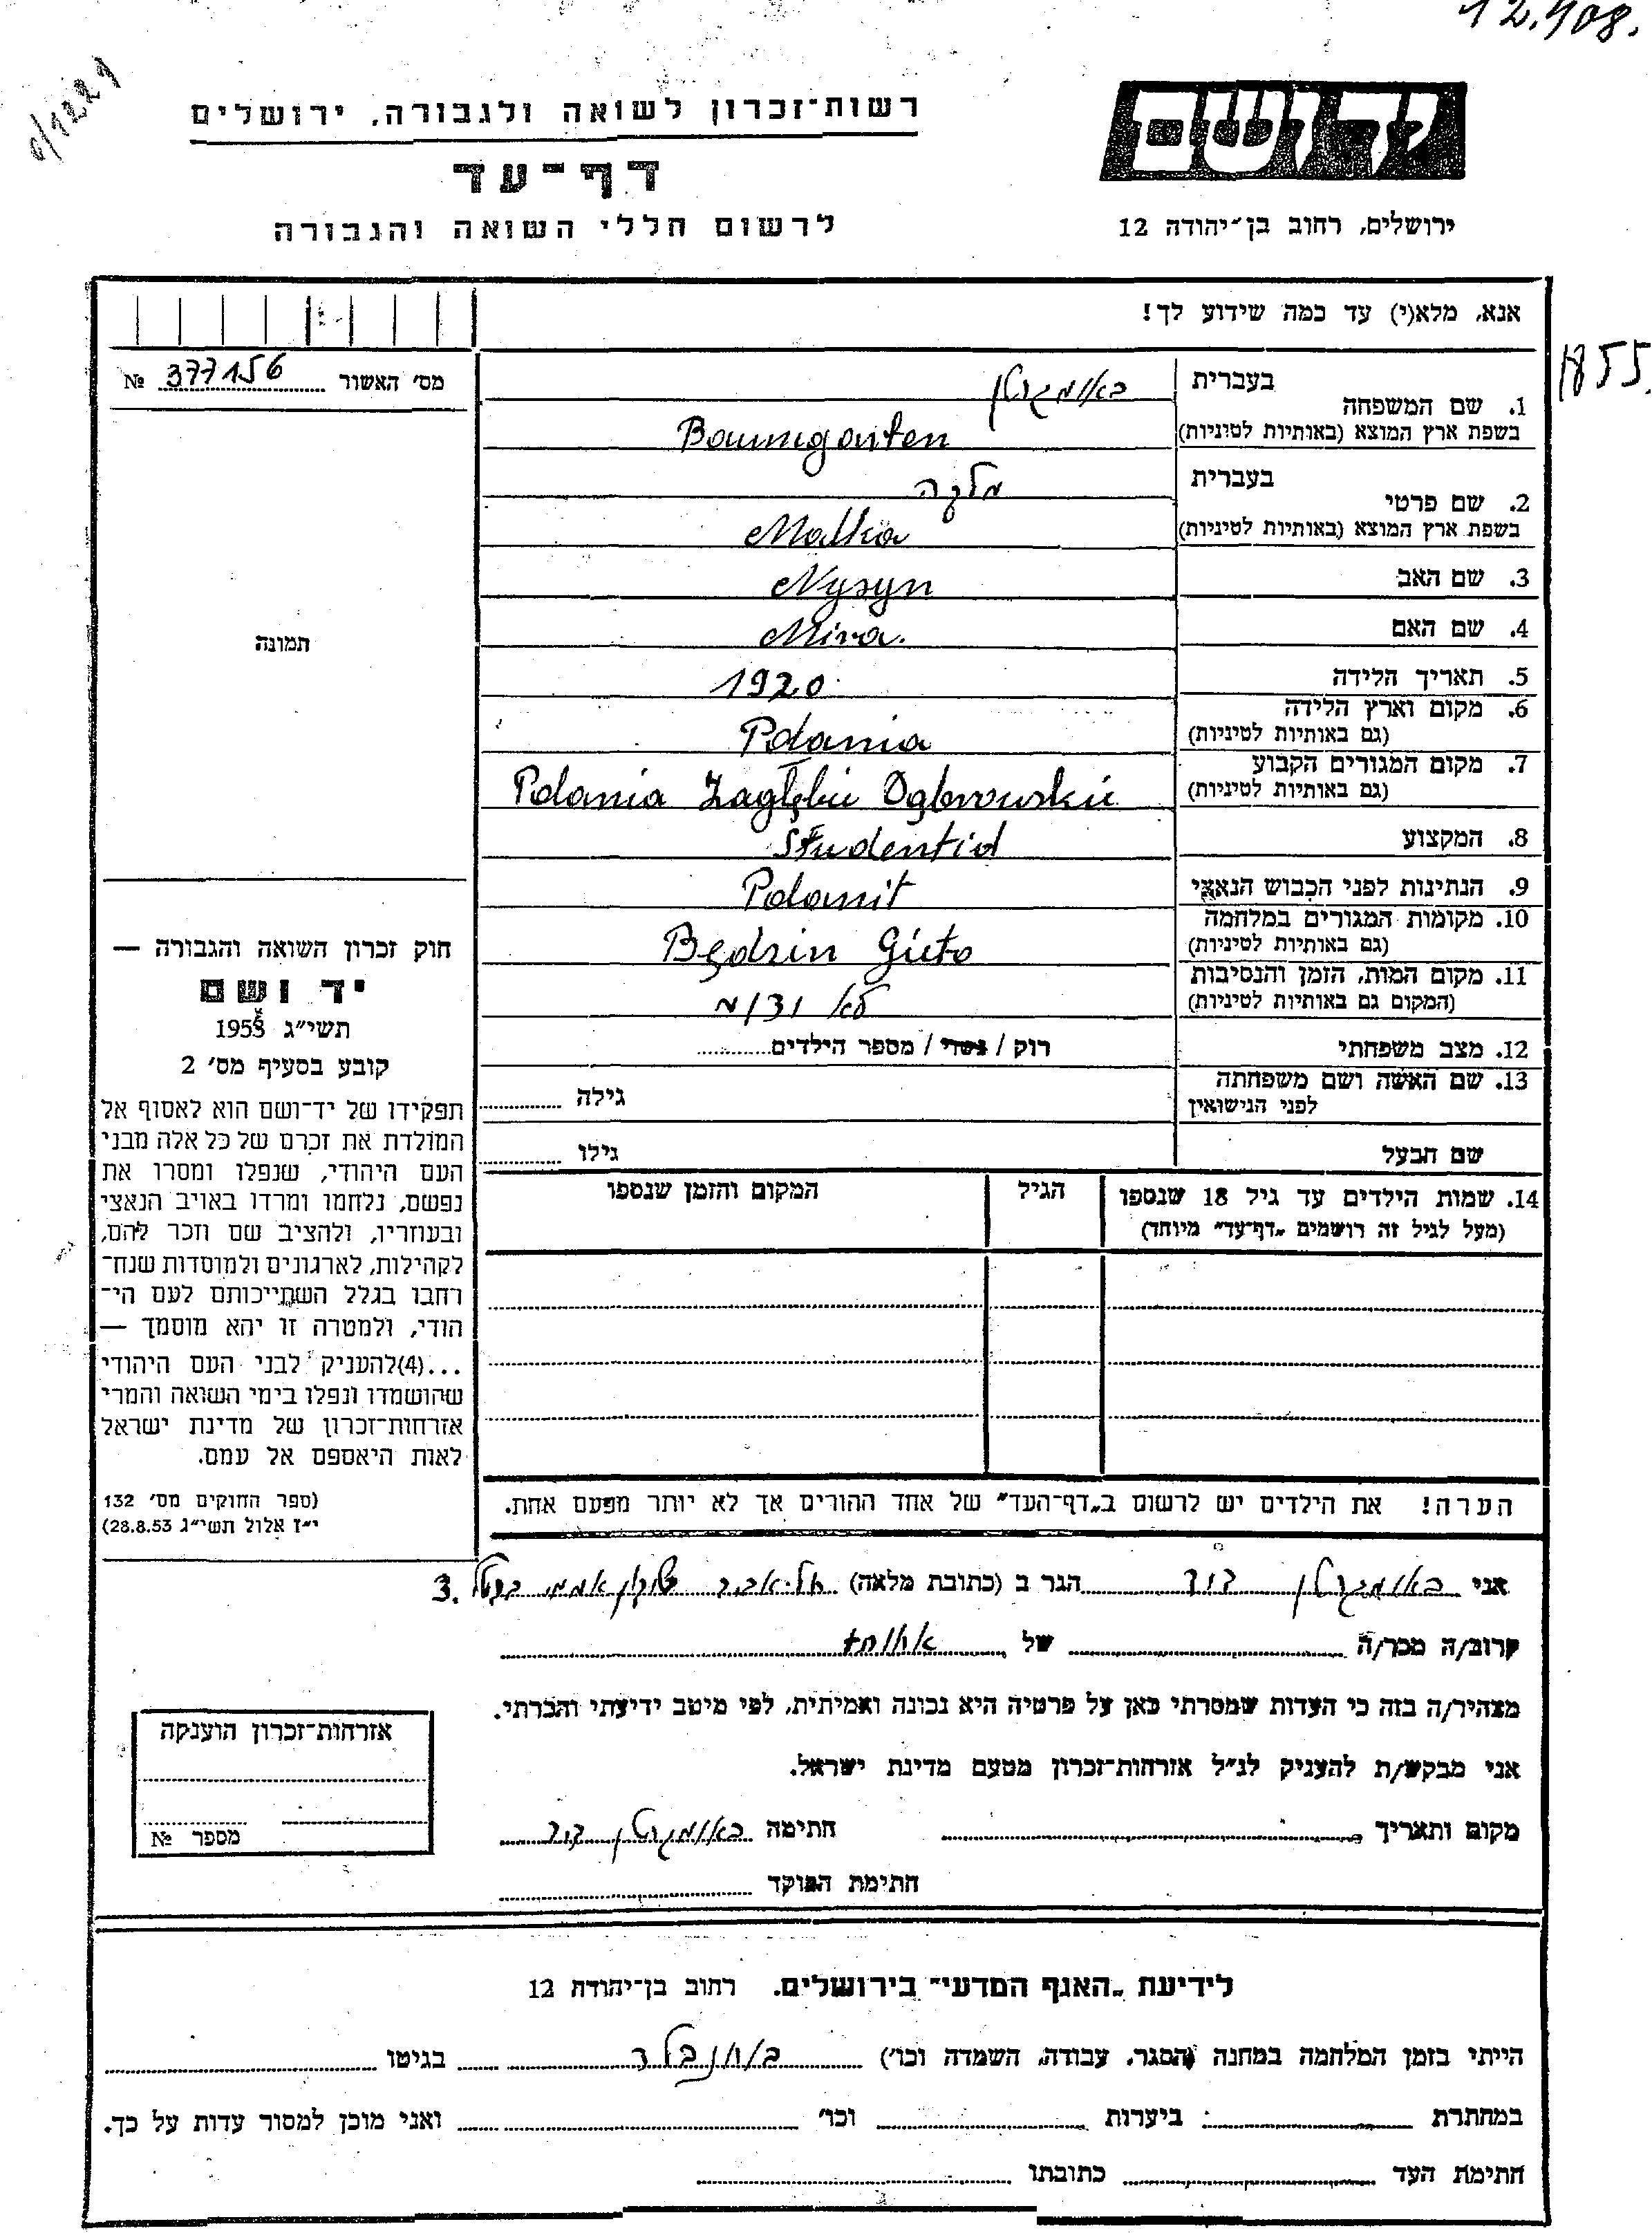 12.908.
רשות־זכרון לשואה ולגבורה, ירושלים
דף־עד
לרשום חללי השואה והגבורה
יד ושם
ירושלים, רחוב בן־יהודה 12
אנא, מלא(י) עד כמה שידוע לך!
1855.
מס׳ האשור 377156 №
תמונה
1. שם המשפחה
בעברית באומגרטן
בשפת ארץ המוצא (באותיות לטיניות) Baumgarten
2. שם פרטי
בעברית מלקה
בשפת ארץ המוצא (באותיות לטיניות) Malka
3. שם האב Nysyn
4. שם האם Mira.
5. תאריך הלידה 1920
6. מקום וארץ הלידה
(גם באותיות לטיניות) Polania
7. מקום המגורים הקבוע
(גם באותיות לטיניות) Polania Zagłębie Dąbrowskie
8. המקצוע Studentid
9. הנתינות לפני הכבוש הנאצי Polanit
10. מקומות המגורים במלחמה
(גם באותיות לטיניות) Będzin Gieto
11. מקום המות, הזמן והנסיבות
(המקום גם באותיות לטיניות) לא ידוע
12. מצב משפחתי רוק / נשוי / מספר הילדים
13. שם האשה ושם משפחתה
לפני הנישואין גילה
שם הבעל גילו
14. שמות הילדים עד גיל 18 שנספו
(מעל לגיל זה רושמים „דף־עד״ מיוחד)
הגיל
המקום והזמן שנספו
הערה! את הילדים יש לרשום ב„דף־העד״ של אחד ההורים אך לא יותר מפעם אחת.
חוק זכרון השואה והגבורה —
יד ושם
תשי״ג 1953
קובע בסעיף מס׳ 2
תפקידו של יד־ושם הוא לאסוף אל
המולדת את זכרם של כל אלה מבני
העם היהודי, שנפלו ומסרו את
נפשם, נלחמו ומרדו באויב הנאצי
ובעוזריו, ולהציב שם וזכר להם,
לקהילות, לארגונים ולמוסדות שנח־
רחבו בגלל השתייכותם לעם הי־
הודי, ולמטרה זו יהא מוסמך —
...(4)להעניק לבני העם היהודי
שהושמדו ונפלו בימי השואה והמרי
אזרחות־זכרון של מדינת ישראל
לאות היאספם אל עמם.
(ספר החוקים מס׳ 132
י״ז אלול תשי״ג 28.8.53)
אני באומגרטן דוד הגר ב (כתובת מלאה) תל־אביב 3.
קרוב/ה מכר/ה של אחות
מצהיר/ה בזה כי העדות שמסרתי כאן על פרטיה היא נכונה ואמיתית, לפי מיטב ידיעתי והכרתי.
אני מבקש/ת להעניק לנ״ל אזרחות־זכרון מטעם מדינת ישראל.
מקום ותאריך חתימה באומגרטן דוד
חתימת הפוקד
אזרחות־זכרון הוענקה
מספר №
לידיעת „האגף המדעי״ בירושלים. רחוב בן־יהודה 12
הייתי בזמן המלחמה במחנה (הסגר, עבודה, השמדה וכו׳) בוחנבלד בגיטו
במחתרת ביערות וכו׳ ואני מוכן למסור עדות על כך.
חתימת העד כתובתו